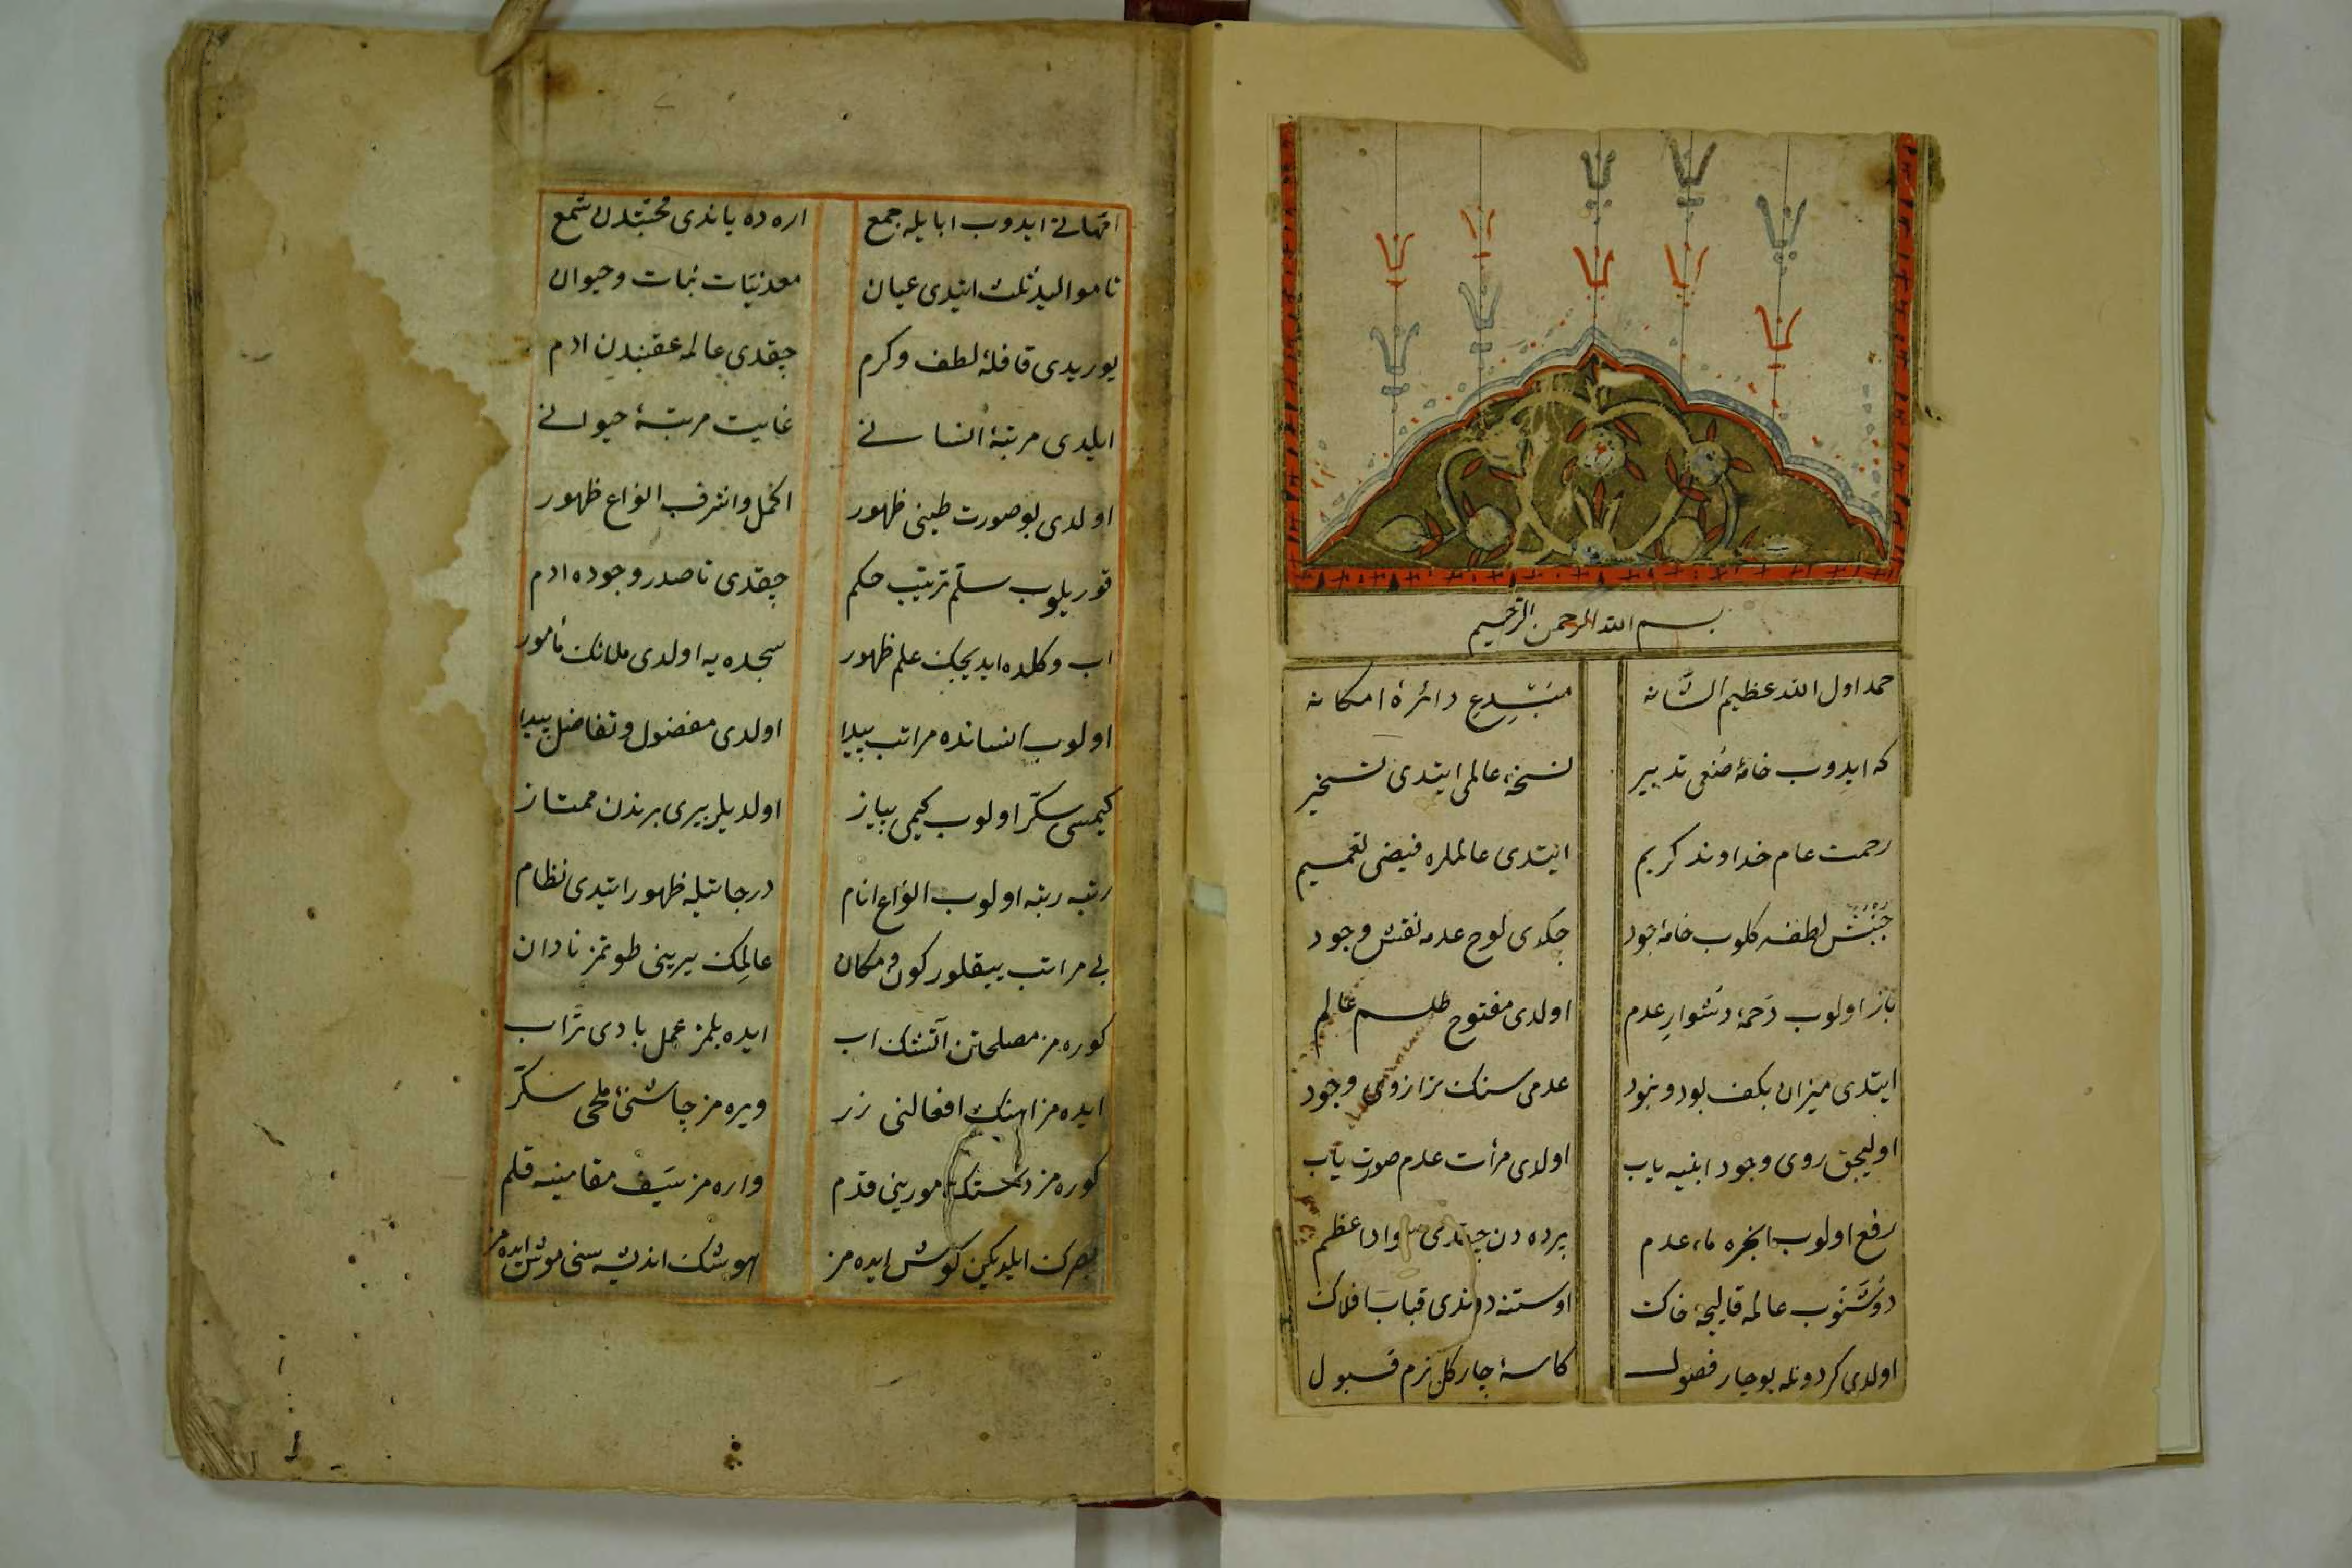 بسم الله الرحمن الرحيم
حمد اول الله عظيم الشانه مبدع دائرهٔ امكانه
كه ايدوب خامهٔ صنعى تدبير نسخهٔ عالمى ايتدى تسخير
رحمت عام خداوند كريم ايتدى عالملره فيضى تعميم
جنبش لطفه كلوب خامهٔ جود چكدى لوح عدمه نقش وجود
باز اولوب دخمهٔ دشوار عدم اولدى مفتوح طلسم عالم
ايتدى ميزان بكف بود و نبود عدمى سنك ترازوى وجود
اوليجق روى وجود ابنيه ياب اولدى مرأت عدم صورت ياب
رفع اولوب ابخرهٔ ماء عدم پرده دن چقدى سواد اعظم
دوشنوب عالمه قاليچهٔ خاك اوستنه دوندى قباب افلاك
اولدى كردونله بو چار فصول كاسهٔ چار كل بزم قبول
امهاتى ايدوب ابا يله جمع اره ده ياندى محبتدن شمع
تا مواليد ثلث ايتدى عيان معدنيات نبات و حيوان
يوريدى قافلهٔ لطف و كرم چقدى عالمه عقبندن ادم
ايلدى مرتبهٔ انسانى غايت مرتبهٔ حيوانى
اولدى بو صورت طينى ظهور اكمل و اشرف انواع ظهور
قوريلوب سلم ترتيب حكم چقدى تا صدر وجوده ادم
اب و كلده ايديجك علم ظهور سجده يه اولدى ملائك مأمور
اولوب انسانده مراتب پيدا اولدى مفضول و تفاضل پيدا
كيمسى سكر اولوب كيمى پياز اولديلر بيرى برندن ممتاز
رتبه رتبه اولوب انواع انام درجاتيله ظهور ايتدى نظام
بى مراتب ييقلور كون و مكان عالمك يرينى طوتمز نادان
كوره مز مصلحتن آتشك اب ايده بلمز عمل بادى تراب
ايده مز اهنك افعالنى زر ويره مز چاشنئ ملحى سكر
كوره مز دستك امورينى قدم واره مز سيف مقامينه قلم
بصرك ايلديكين كوش ايده مز هوشك انديشه سنى موش ايده مز